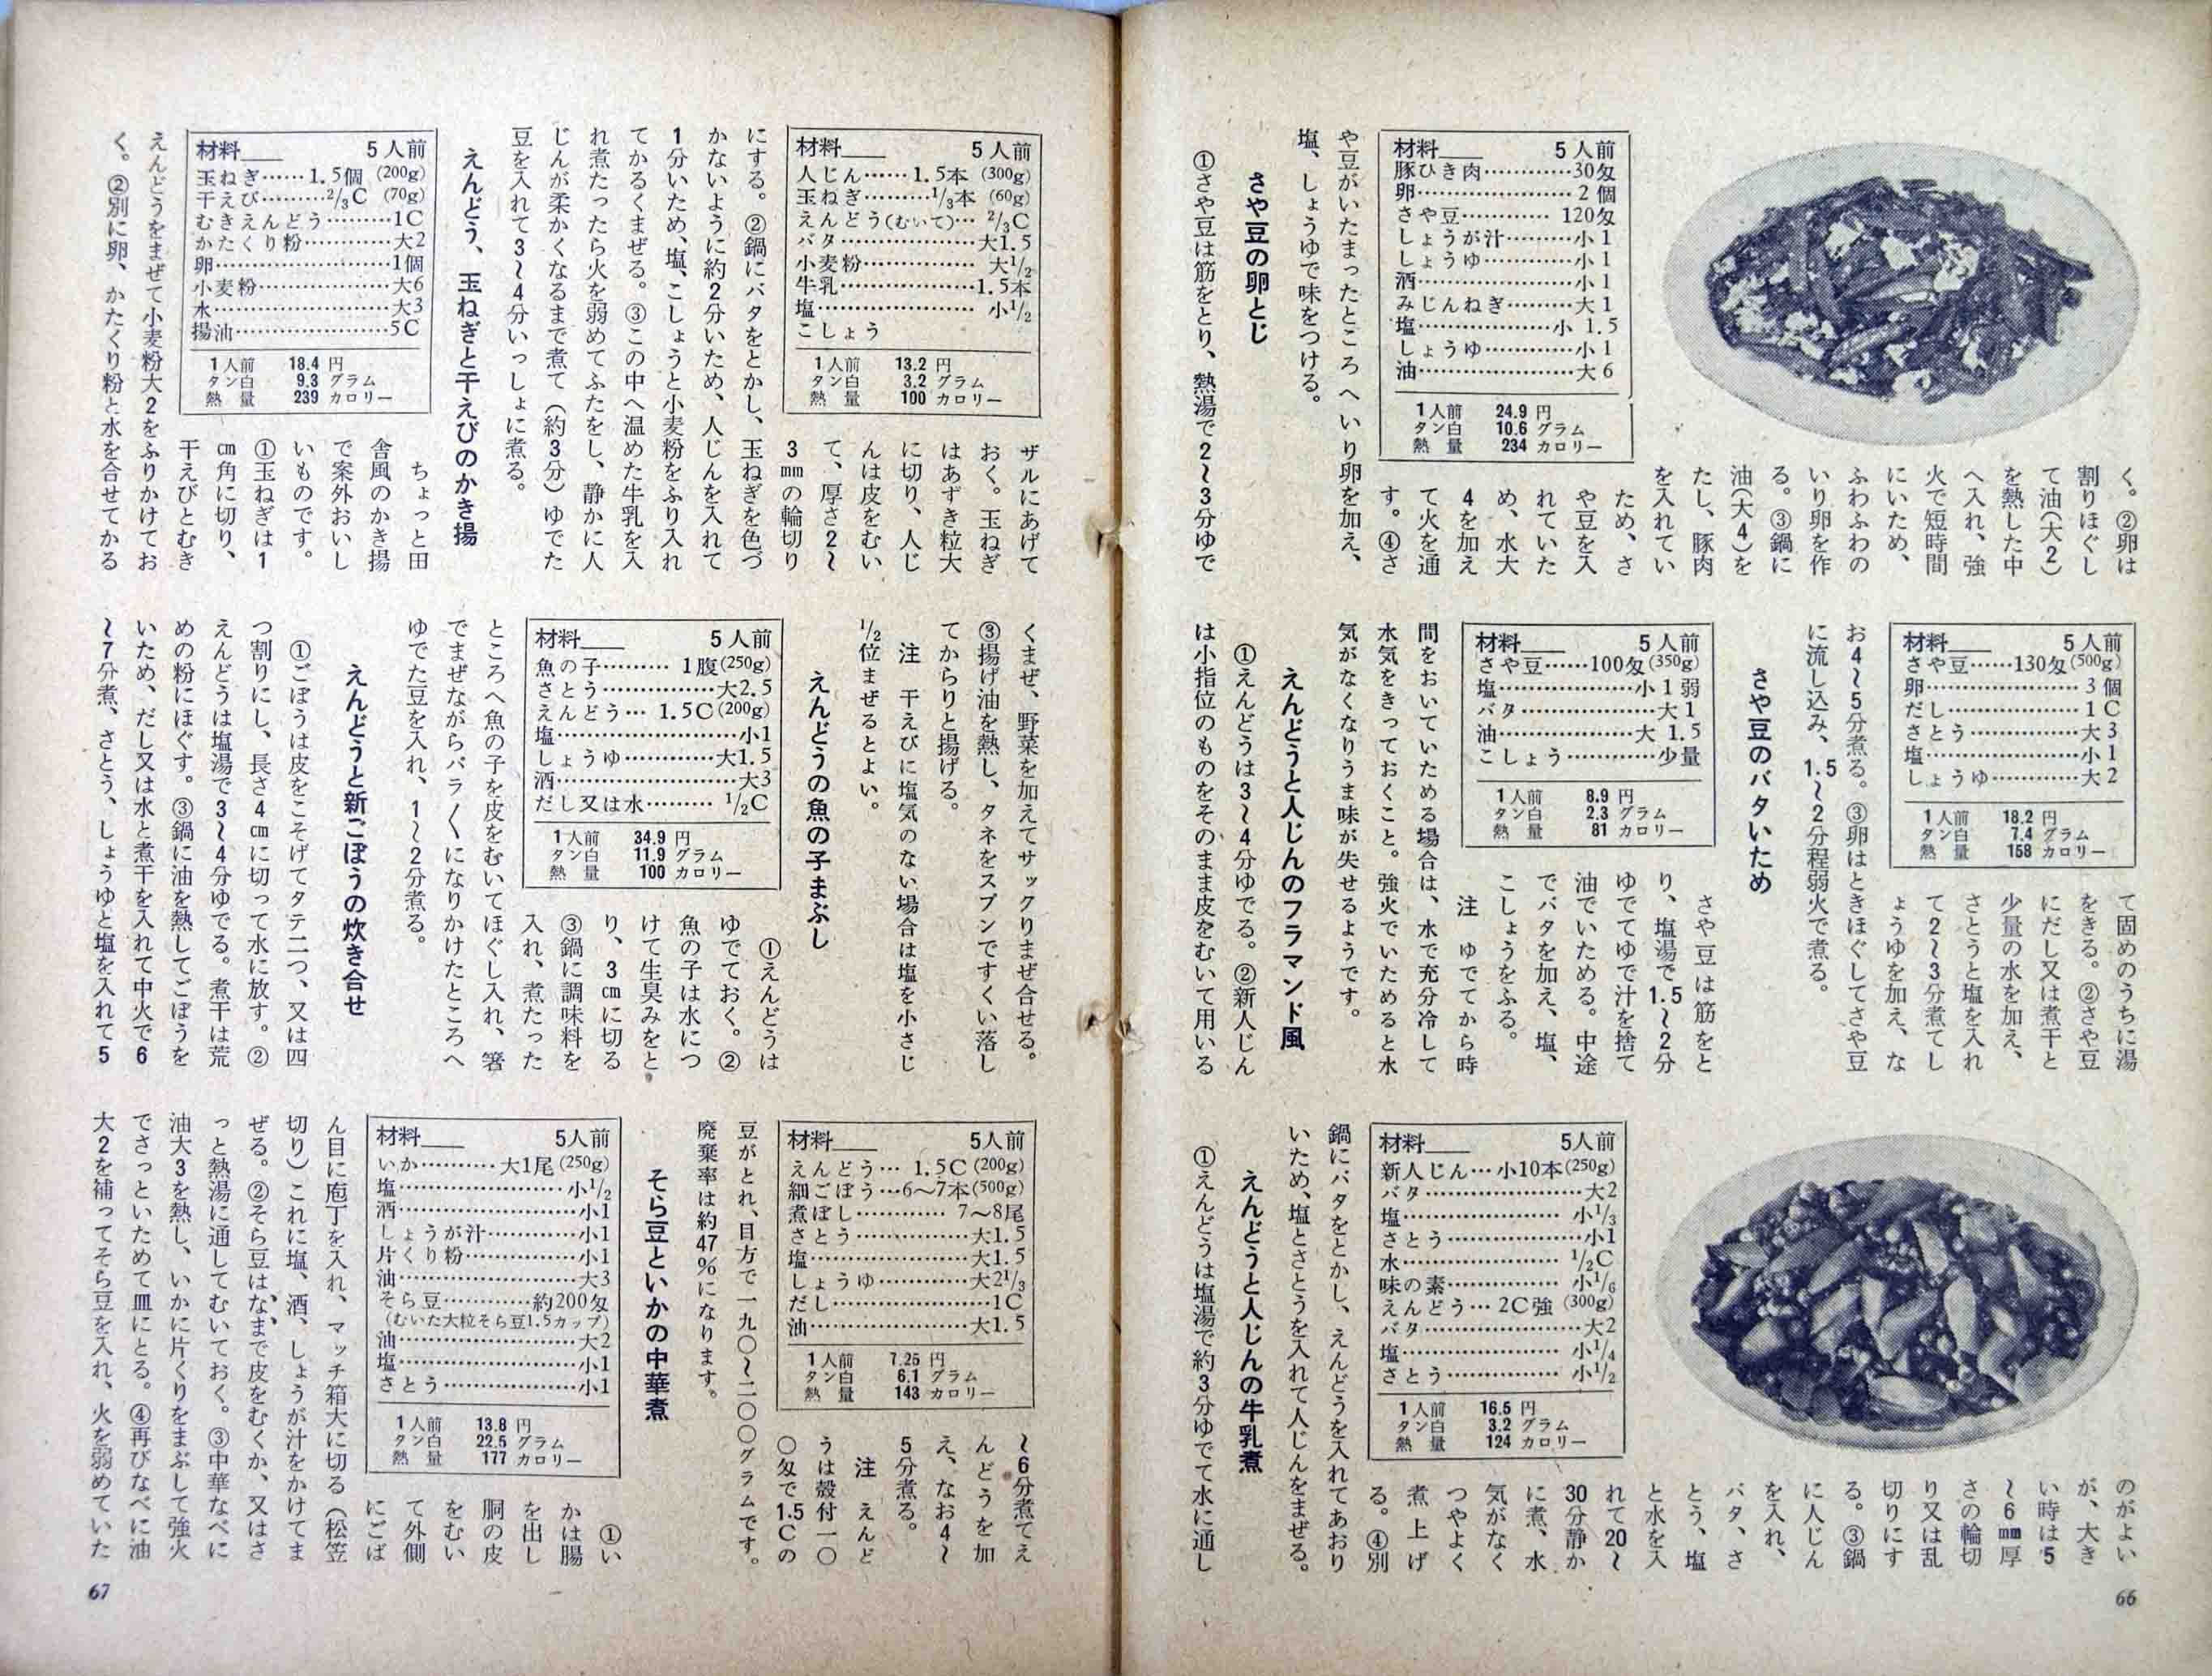 材料 5人前
豚ひき肉…………30匁
卵…………………2個
さや豆…………120匁
しょうが汁………小1
しょうゆ…………小1
酒…………………小1
みじんねぎ………大1
塩………………小 1.5
しょうゆ…………小1
油…………………大6
1人前 24.9 円
タン白 10.6 グラム
熱量 234 カロリー
く。②卵は
割りほぐし
て油(大2)
を熱した中
へ入れ、強
火で短時間
にいため、
ふわふわの
いり卵を作
る。③鍋に
油(大4)を
たし、豚肉
を入れてい
ため、さ
や豆を入
れていた
め、水大
4を加え
て火を通
す。④さ
や豆がいたまったところへいり卵を加え、
塩、しょうゆで味をつける。
さや豆の卵とじ
①さや豆は筋をとり、熱湯で2〜3分ゆで
材料 5人前
さや豆……130匁(500g)
卵…………………3個
だし………………1C
さとう……………大3
塩…………………小1
しょうゆ…………大2
1人前 18.2 円
タン白 7.4 グラム
熱量 158 カロリー
て固めのうちに湯
をきる。②さや豆
にだし又は煮干と
少量の水を加え、
さとうと塩を入れ
て2〜3分煮てし
ょうゆを加え、な
お4〜5分煮る。③卵はときほぐしてさや豆
に流し込み、1.5〜2分程弱火で煮る。
さや豆のバタいため
材料 5人前
さや豆……100匁(350g)
塩………………小1弱
バタ………………大1
油………………大 1.5
こしょう…………少量
1人前 8.9 円
タン白 2.3 グラム
熱量 81 カロリー
さや豆は筋をと
り、塩湯で1.5〜2分
ゆでてゆで汁を捨て
油でいためる。中途
でバタを加え、塩、
こしょうをふる。
注 ゆでてから時
間をおいていためる場合は、水で充分冷して
水気をきっておくこと。強火でいためると水
気がなくなりうま味が失せるようです。
えんどうと人じんのフラマンド風
①えんどうは3〜4分ゆでる。②新人じん
は小指位のものをそのまま皮をむいて用いる
材料 5人前
新人じん…小10本(250g)
バタ………………大2
塩…………………小1/3
さとう……………小1
水…………………1/2C
味の素……………小1/6
えんどう…2C強(300g)
バタ………………大2
塩…………………小1/4
さとう……………小1/2
1人前 16.5 円
タン白 3.2 グラム
熱量 124 カロリー
のがよい
が、大き
い時は5
〜6mm厚
さの輪切
り又は乱
切りにす
る。③鍋
に人じん
を入れ、
バタ、さ
とう、塩
と水を入
れて20〜
30分静か
に煮、水
気がなく
つやよく
煮上げ
る。④別
鍋にバタをとかし、えんどうを入れてあおり
いため、塩とさとうを入れて人じんをまぜる。
えんどうと人じんの牛乳煮
①えんどうは塩湯で約3分ゆでて水に通し
66
材料 5人前
人じん……1.5本(300g)
玉ねぎ………1/3本(60g)
えんどう(むいて)…2/3C
バタ………………大1.5
小麦粉……………大1/2
牛乳………………1.5本
塩…………………小1/2
こしょう
1人前 13.2 円
タン白 3.2 グラム
熱量 100 カロリー
ザルにあげて
おく。玉ねぎ
はあずき粒大
に切り、人じ
んは皮をむい
て、厚さ2〜
3mmの輪切り
にする。②鍋にバタをとかし、玉ねぎを色づ
かないように約2分いため、人じんを入れて
1分いため、塩、こしょうと小麦粉をふり入れ
てかるくまぜる。③この中へ温めた牛乳を入
れ煮たったら火を弱めてふたをし、静かに人
じんが柔かくなるまで煮て(約3分)ゆでた
豆を入れて3〜4分いっしょに煮る。
えんどう、玉ねぎと干えびのかき揚
材料 5人前
玉ねぎ……1.5個(200g)
干えび………2/3C(70g)
むきえんどう………1C
かたくり粉…………大2
卵…………………1個
小麦粉……………大6
水…………………大3
揚油………………5C
1人前 18.4 円
タン白 9.3 グラム
熱量 239 カロリー
ちょっと田
舎風のかき揚
で案外おいし
いものです。
①玉ねぎは1
cm角に切り、
干えびとむき
えんどうをまぜて小麦粉大2をふりかけてお
く。②別に卵、かたくり粉と水を合せてかる
くまぜ、野菜を加えてサックリまぜ合せる。
③揚げ油を熱し、タネをスプンですくい落し
てからりと揚げる。
注 干えびに塩気のない場合は塩を小さじ
1/2位まぜるとよい。
えんどうの魚の子まぶし
材料 5人前
魚の子………1腹(250g)
さとう……………大2.5
えんどう…1.5C(200g)
塩…………………小1
しょうゆ…………大1.5
酒…………………大3
だし又は水………1/2C
1人前 34.9 円
タン白 11.9 グラム
熱量 100 カロリー
①えんどうは
ゆでておく。②
魚の子は水につ
けて生臭みをと
り、3cmに切る
③鍋に調味料を
入れ、煮たった
ところへ魚の子を皮をむいてほぐし入れ、箸
でまぜながらバラ〱になりかけたところへ
ゆでた豆を入れ、1〜2分煮る。
えんどうと新ごぼうの炊き合せ
①ごぼうは皮をこそげてタテ二つ、又は四
つ割りにし、長さ4cmに切って水に放す。②
えんどうは塩湯で3〜4分ゆでる。煮干は荒
めの粉にほぐす。③鍋に油を熱してごぼうを
いため、だし又は水と煮干を入れて中火で6
〜7分煮、さとう、しょうゆと塩を入れて5
材料 5人前
えんどう…1.5C(200g)
細ごぼう…6〜7本(500g)
煮ぼし…………7〜8尾
さとう……………大1.5
塩…………………大1.5
しょうゆ…………大2 1/3
だし………………1C
油…………………大1.5
1人前 7.25 円
タン白 6.1 グラム
熱量 143 カロリー
〜6分煮てえ
んどうを加
え、なお4〜
5分煮る。
注 えんど
うは殻付一〇
〇匁で1.5Cの
豆がとれ、目方で一九〇〜二〇〇グラムです。
廃棄率は約47%になります。
そら豆といかの中華煮
材料 5人前
いか………大1尾(250g)
塩…………………小1/2
酒…………………小1
しょうが汁………小1
片くり粉…………小1
油…………………大3
そら豆………約200匁
(むいた大粒そら豆1.5カップ)
油…………………大2
塩…………………小1
さとう……………小1
1人前 13.8 円
タン白 22.5 グラム
熱量 177 カロリー
①い
かは腸
を出し
胴の皮
をむい
て外側
にごば
ん目に庖丁を入れ、マッチ箱大に切る(松笠
切り)これに塩、酒、しょうが汁をかけてま
ぜる。②そら豆はなまで皮をむくか、又はさ
っと熱湯に通してむいておく。③中華なべに
油大3を熱し、いかに片くりをまぶして強火
でさっといためて皿にとる。④再びなべに油
大2を補ってそら豆を入れ、火を弱めていた
67